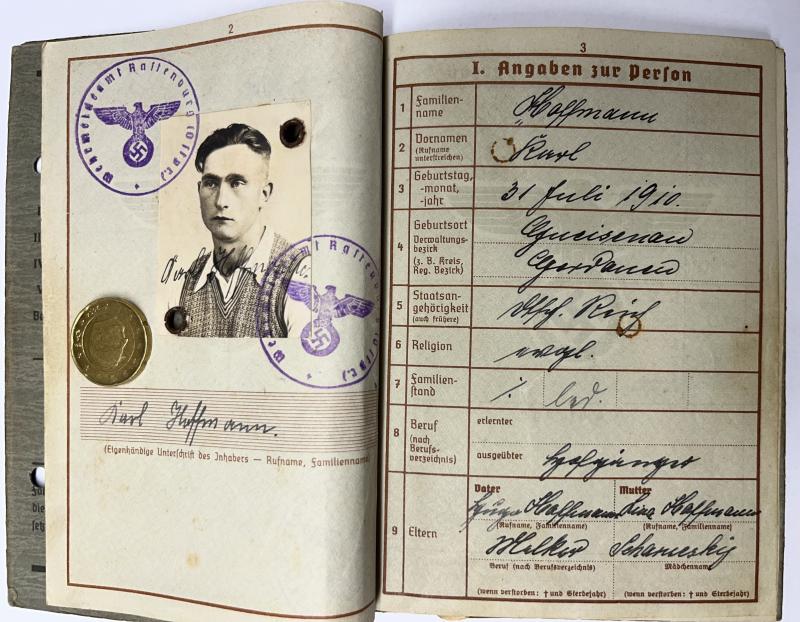 2
Wehrmeldeamt Rastenburg (Ostpr.)
Wehrmeldeamt Rastenburg (Ostpr.)
Karl Hoffmann.
(Eigenhändige Unterschrift des Inhabers — Rufname, Familienname)
3
I. Angaben zur Person
1 Familienname Hoffmann
2 Vornamen (Rufname unterstreichen) Karl
3 Geburtstag, -monat, -jahr 31 Juli 1910.
4 Geburtsort Verwaltungsbezirk (z. B. Kreis, Reg. Bezirk) Gneisenau
Gerdauen
5 Staatsangehörigkeit (auch frühere) Dtsch. Reich
6 Religion evgl.
7 Familienstand ·/. led.
8 Beruf (nach Berufsverzeichnis) erlernter
ausgeübter
9 Eltern
Vater Mutter
Hugo Hoffmann Hoffmann
(Rufname, Familienname) (Rufname, Familienname)
Melker
Beruf (nach Berufsverzeichnis) Mädchenname
(wenn verstorben: † und Sterbejahr) (wenn verstorben: † und Sterbejahr)